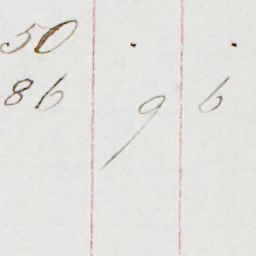 50 . .
86 9 6